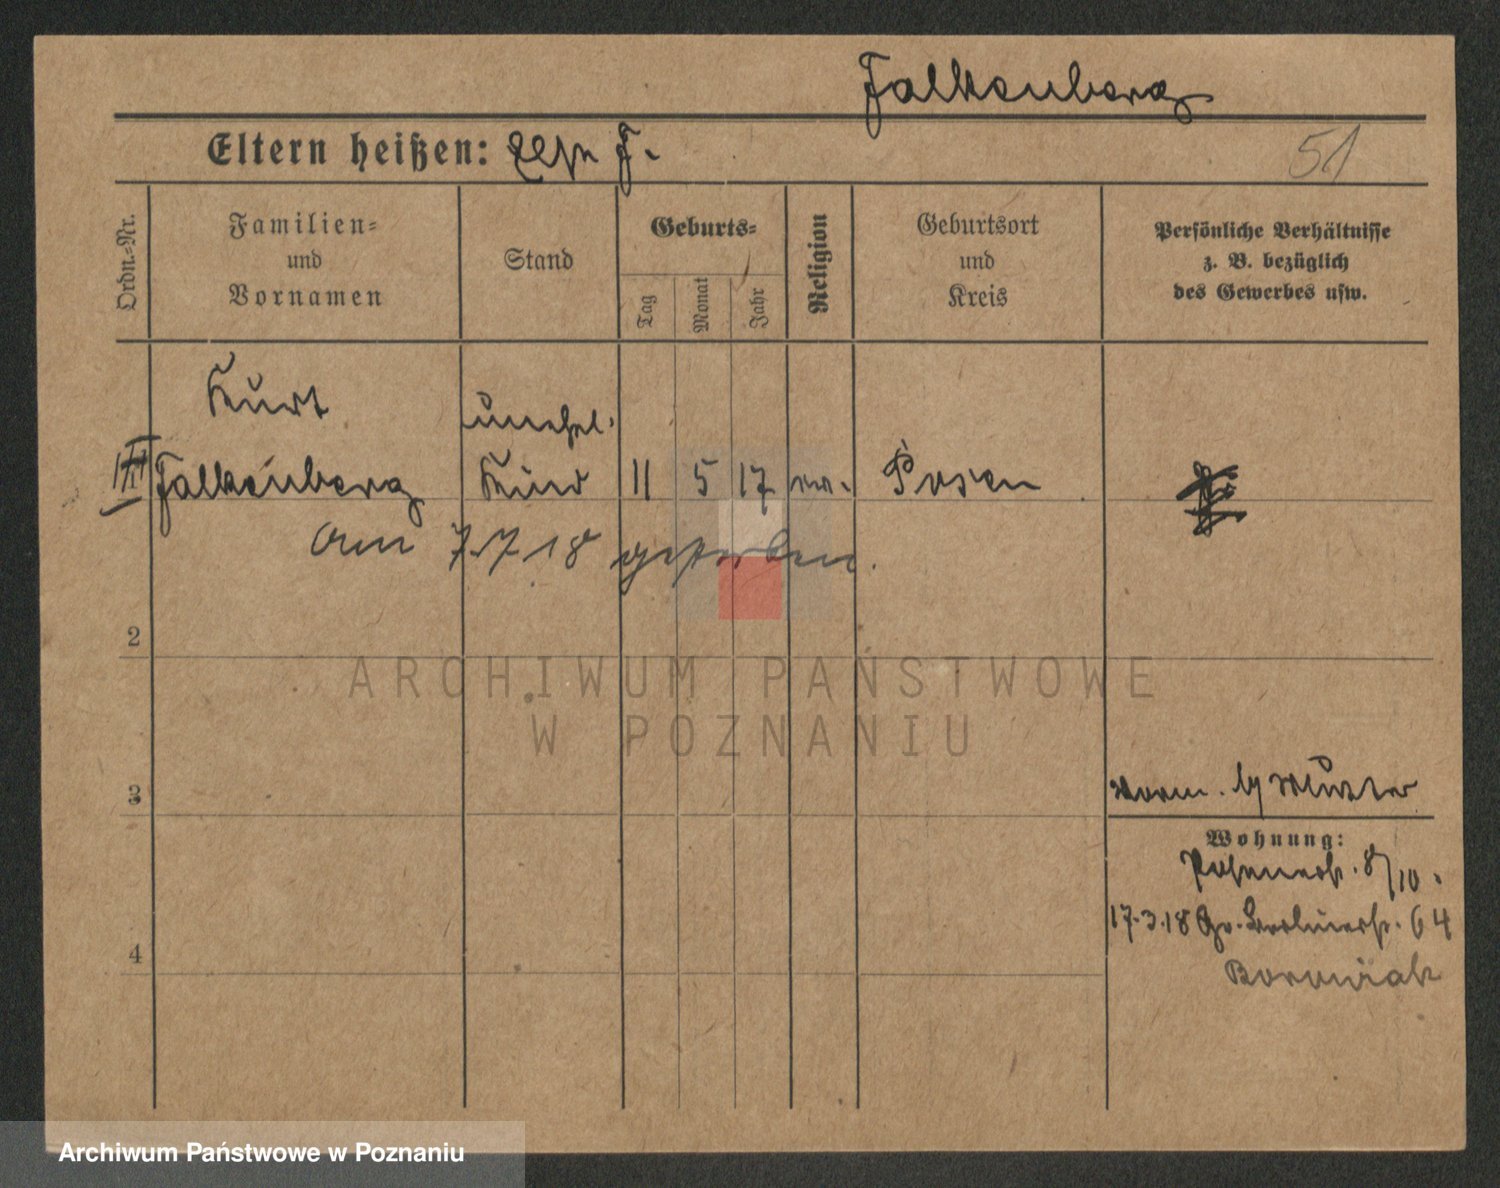 Falkenberg
Eltern heißen: F.
51
Ordn.-Nr.
Familien-
und
Vornamen
Stand
Geburts-
Tag
Monat
Jahr
Religion
Geburtsort
und
Kreis
Persönliche Verhältnisse
z. B. bezüglich
des Gewerbes usw.
Kurt
unehel.
Falkenberg Kind 11 5 17 Posen
am 7.7.18 gestorben.
2
ARCHIWUM PAŃSTWOWE
W POZNANIU
3
Mutter
Wohnung:
Posenerstr. 8/10.
17.3.18 Gr. Berlinerstr. 64
Borowiak
4
Archiwum Państwowe w Poznaniu